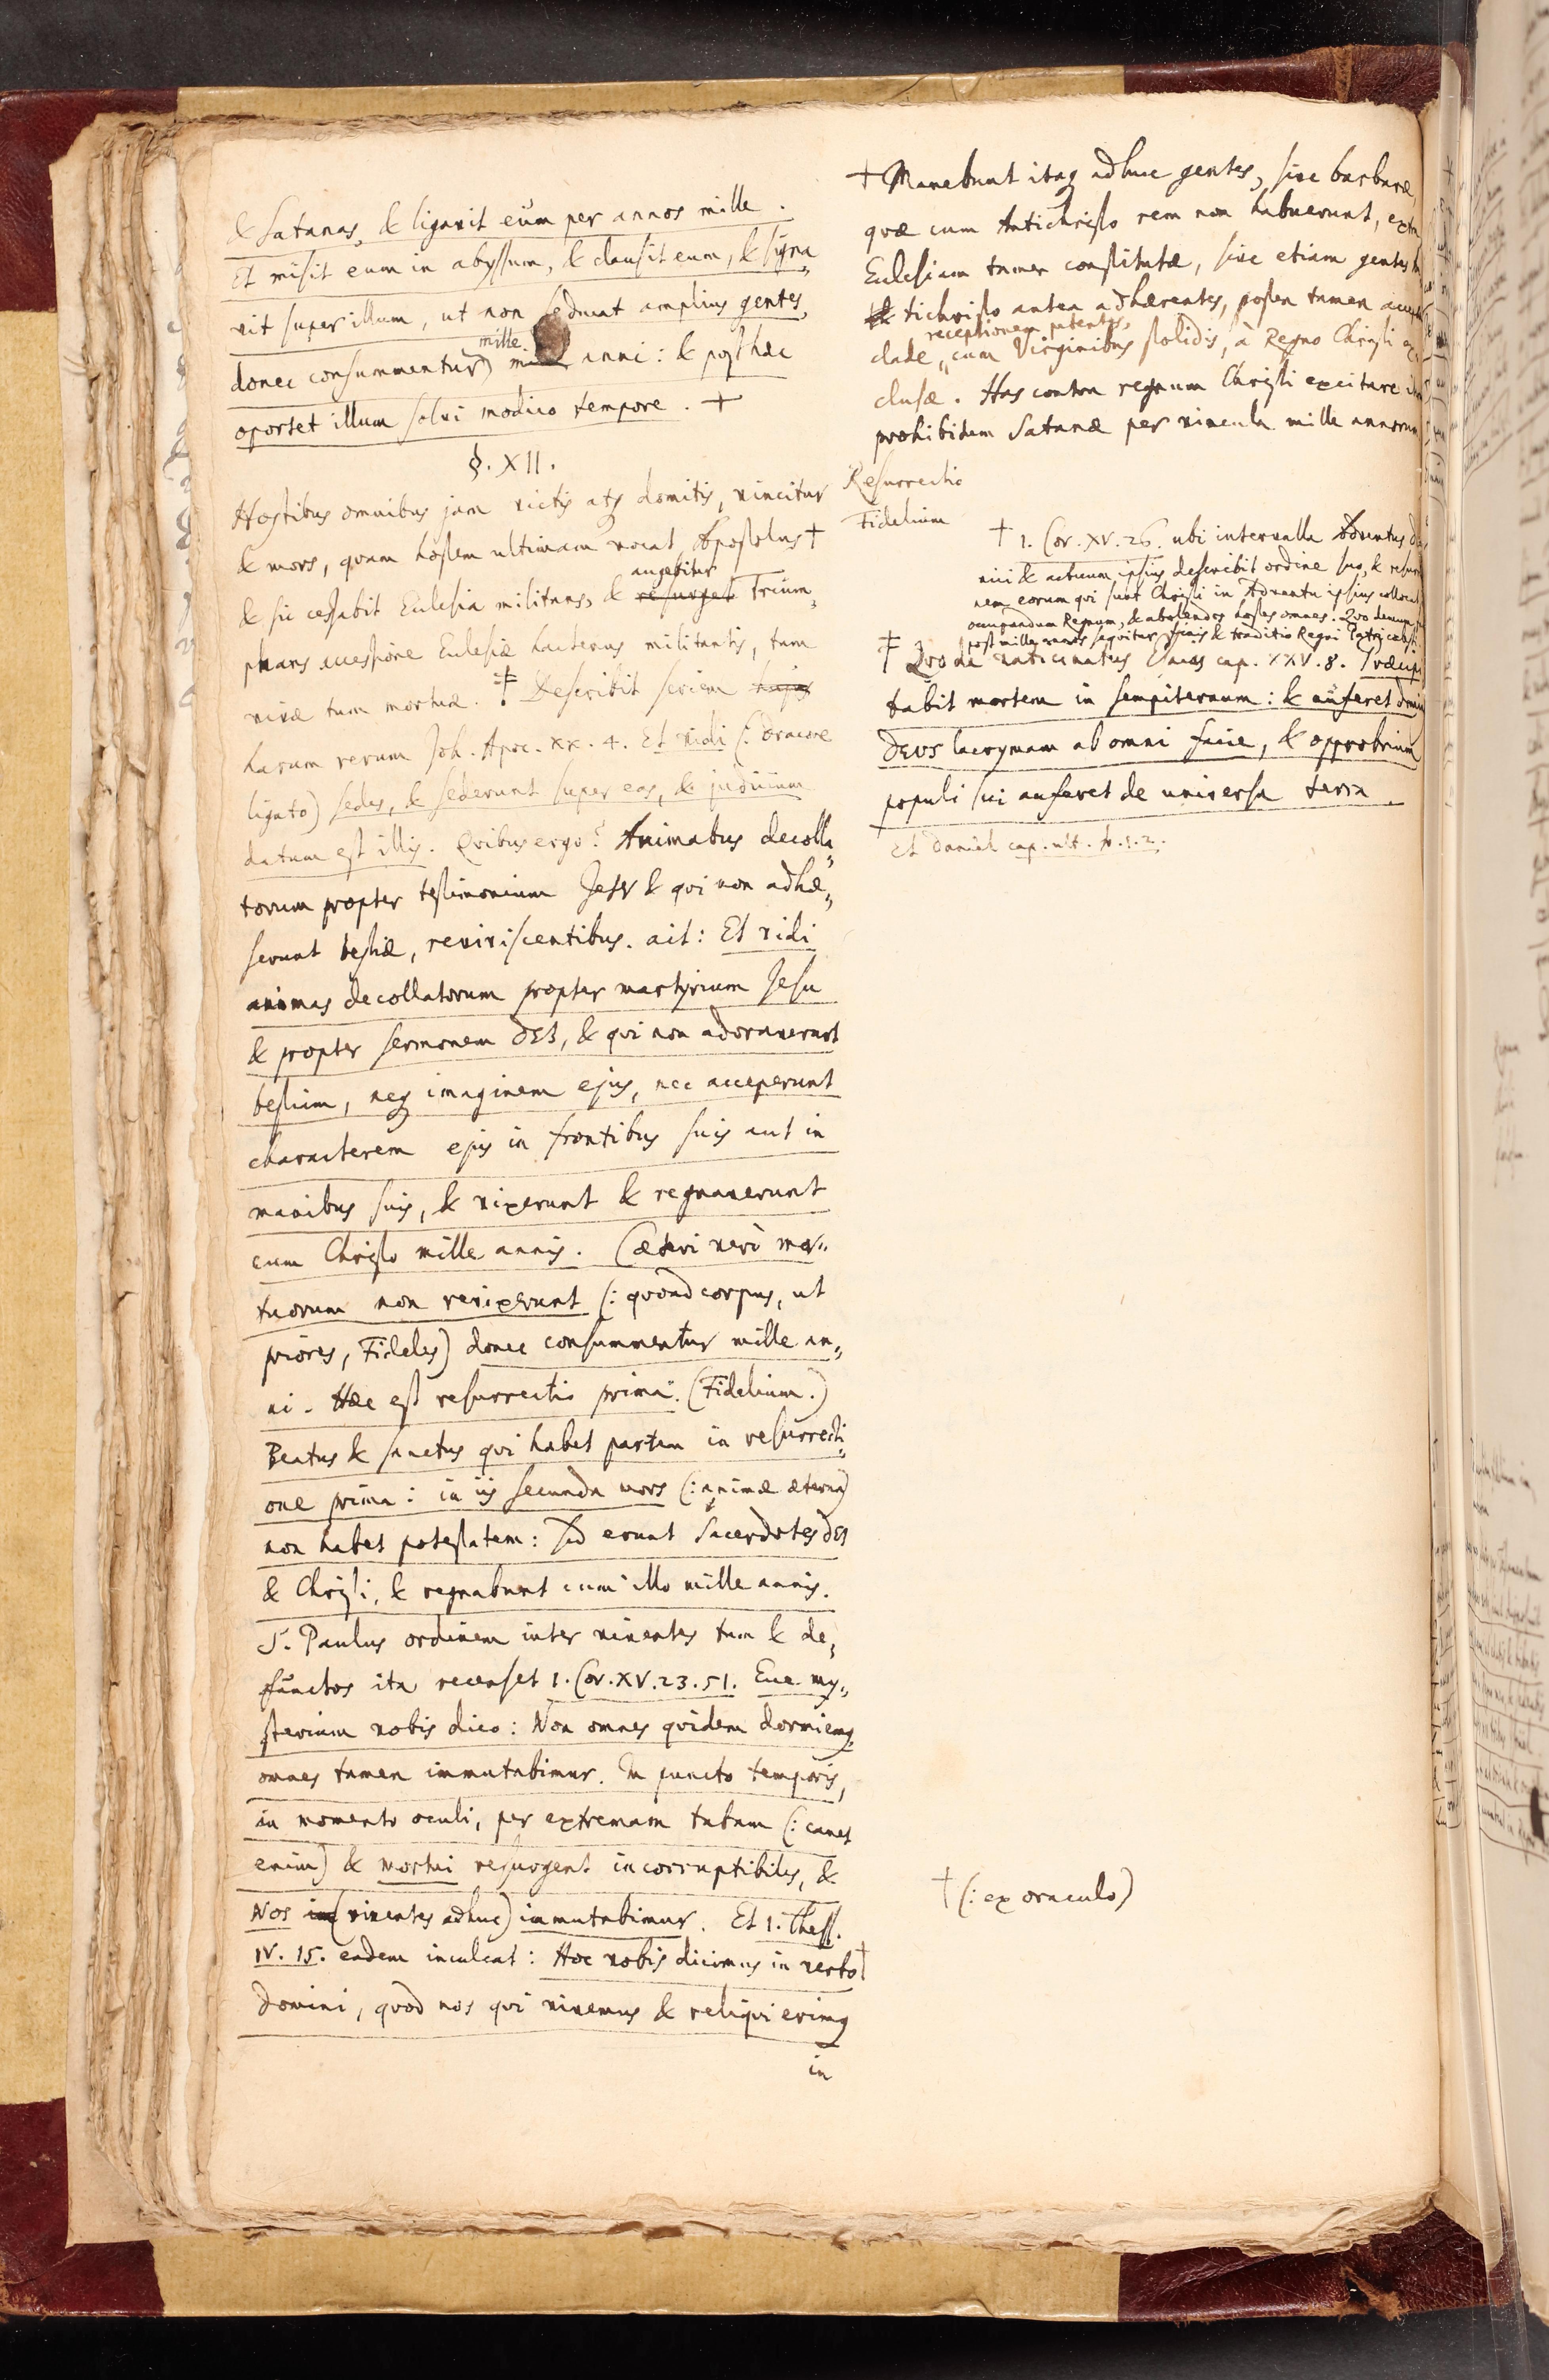 & Satanas, & ligavit eum per annos mille.
Et misit eum in abyssum, & clausit eum, & signa„
vit super illum, ut non seducat amplius gentes,
mille.
donec consummentur) anni: & posthæc
oportet illum solvi modico tempore. +
§. XII.
Hostibus omnibus jam victis atq domitis, vincitur
& mors, quam hostem ultimam vocat Apostolus †
augebitur
& sic cessabit Ecclesia militans, & resurget Trium„
phans accessione Ecclesiæ hactenus militantis, tum
vivæ tum mortuæ. ‡ Describit seriem hujus
harum rerum Joh. Apoc. XX. 4. Et vidi (: dracone
ligato) sedes, & sederunt super eas, & judicium
datum est illis. Qvibus ergo? Animabus decolla„
torum propter testimonium Jesu & qvi non adhæ„
serunt bestiæ, reviviscentibus. ait: Et vidi
animas decollatorum propter martyrium Jesu
& propter sermonem DEI, & qvi non adoraverunt
bestiam, neq imaginem ejus, nec acceperunt
characterem ejus in frontibus suis aut in
manibus suis, & vixerunt & regnaverunt
cum Christo mille annis. Cæteri verò mor„
tuorum non revixerunt (: qvoad corpus, ut
priores, Fideles) donec consummentur mille an„
ni. Hæc est resurrectio prima. (Fidelium.)
Beatus & sanctus qvi habet partem in resurrecti„
one prima: in iis secunda mors (: animæ æterna)
non habet potestatem: sed erunt Sacerdotes DEI
& Christi, & regnabunt cum illo mille annis.
S. Paulus ordinem inter viventes tum & de„
functos ita recenset 1. Cor. XV. 23. 51. Ecce my„
sterium vobis dico: Non omnes qvidem dormiemq,
omnes tamen immutabimur. In puncto temporis,
in momento oculi, per extremam tubam (: canet
enim) & mortui resurgent incorruptibiles, &
Nos (viventes adhuc) immutabimur. Et 1. Thess.
IV. 15. eadem inculcat: Hoc vobis dicimus in verbo †
Domini, qvod nos qvi vivemus & reliqvi erimq
in
+ Manebunt itaq adhuc gentes, sive barbaræ,
qvæ cum Antichristo rem non habuerunt, extra
Ecclesiam tamen constitutæ, sive etiam gentes
tichristo antea adhærentes, postea tamen
receptionem petentes,
clade „ cum Virginibus stolidis, à Regno Christi
clusæ. Has contra regnum Christi excitare
prohibidum Satanæ per vincula mille annorum
Resurrectio
Fidelium
† 1. Cor. XV. 26. ubi intervalla Adventus
& actuum ipsius describit ordine suo, &
nem eorum qvi sunt Christi in Adventu ipsius
occupandum Regnum, & abolendos hostes omnes. Qvo demum
post mille annos seqvitur finis & traditio Regni Patri
‡ Qvo de vaticinatus Esaias cap. XXV. 8. Præcipi
tabit mortem in sempiternum: & auferet
DEUS lacrymam ab omni facie, & opprobrium
populi sui auferet de universa terra.
Et Daniel cap. ult. v. 1. 2.
† (: ex oraculo)